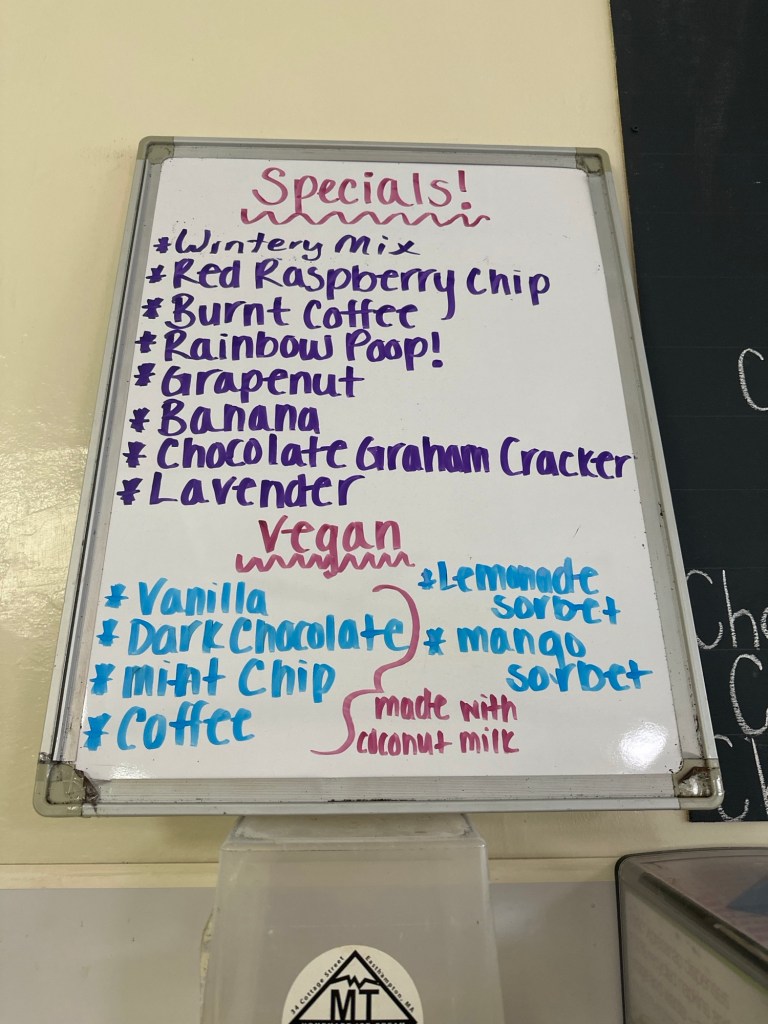 Specials!
* Wintery Mix
* Red Raspberry Chip
* Burnt Coffee
* Rainbow Poop!
* Grapenut
* Banana
* Chocolate Graham Cracker
* Lavender
Vegan
* Vanilla
* Dark Chocolate
* mint Chip
* Coffee
made with
coconut milk
* Lemonade
sorbet
* mango
sorbet
34 Cottage Street
Easthampton, MA
MT